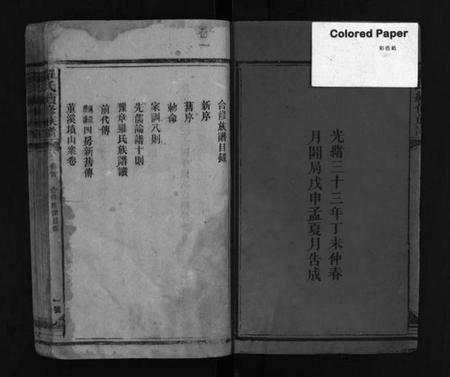 Colored Paper
彩色紙
光緒三十三年丁未仲春
月開局戊申孟夏月告成
卷一
合修族譜目錄
新序
舊序
勅命
家訓八則
先儒論譜十則
豫章羅氏族譜讚
前代傳
四房新舊傳
墳山宗卷
羅氏
一號